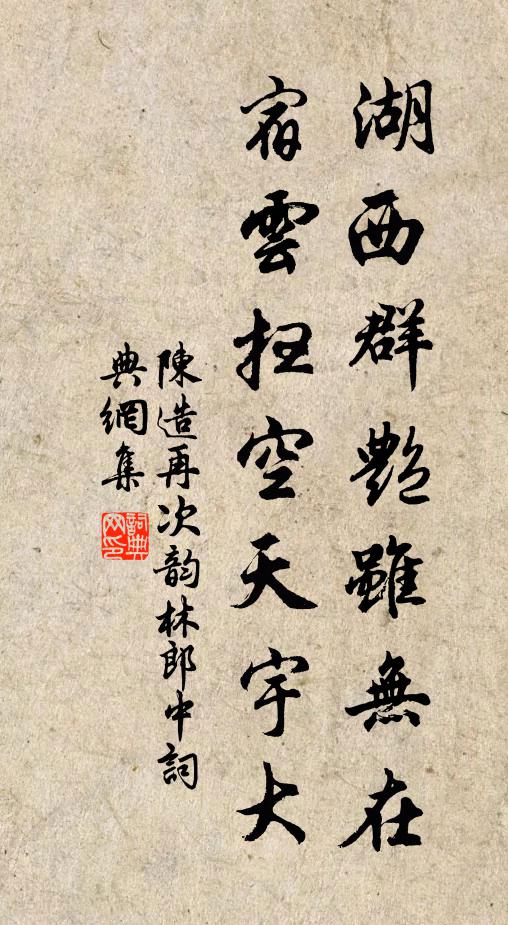 湖西群艷雖無在
宿雲掃空天宇大
陳造再次韵林郎中詞
典網集
詞典網印